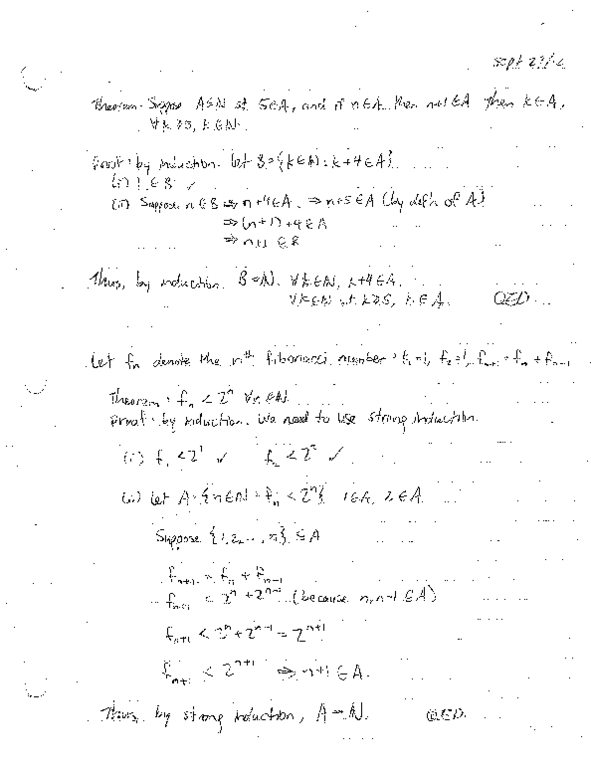 Sept 23/
Theorem. Suppose A⊆N st 5∈A, and if n∈A then n+1∈A then k∈A,
∀k≥5, k∈N.
Proof: by induction. Let B={k∈N: k+4∈A}
(i) 1∈B ✓
(ii) Suppose n∈B ⇒ n+4∈A. ⇒ n+5∈A (by defn of A)
⇒ (n+1)+4∈A
⇒ n+1∈B
Thus, by induction B=N. ∀k∈N, k+4∈A.
∀k∈N st k≥5, k∈A. QED
Let fn denote the nth fibonacci number: f₁=1, f₂=1, fₙ₊₁=fₙ+fₙ₋₁
Theorem: fₙ < 2ⁿ ∀n∈N
Proof: by induction. We need to use strong induction.
(i) f₁<2¹ ✓ f₂<2² ✓
(ii) Let A={n∈N: fₙ<2ⁿ} 1∈A, 2∈A
Suppose {1,2,...,n}⊆A
fₙ₊₁ = fₙ + fₙ₋₁
fₙ₊₁ < 2ⁿ + 2ⁿ⁻¹ (because n, n-1∈A)
fₙ₊₁ < 2ⁿ + 2ⁿ⁻¹ = 2ⁿ⁺¹
fₙ₊₁ < 2ⁿ⁺¹ ⇒ n+1∈A.
Thus, by strong induction, A=N. QED.